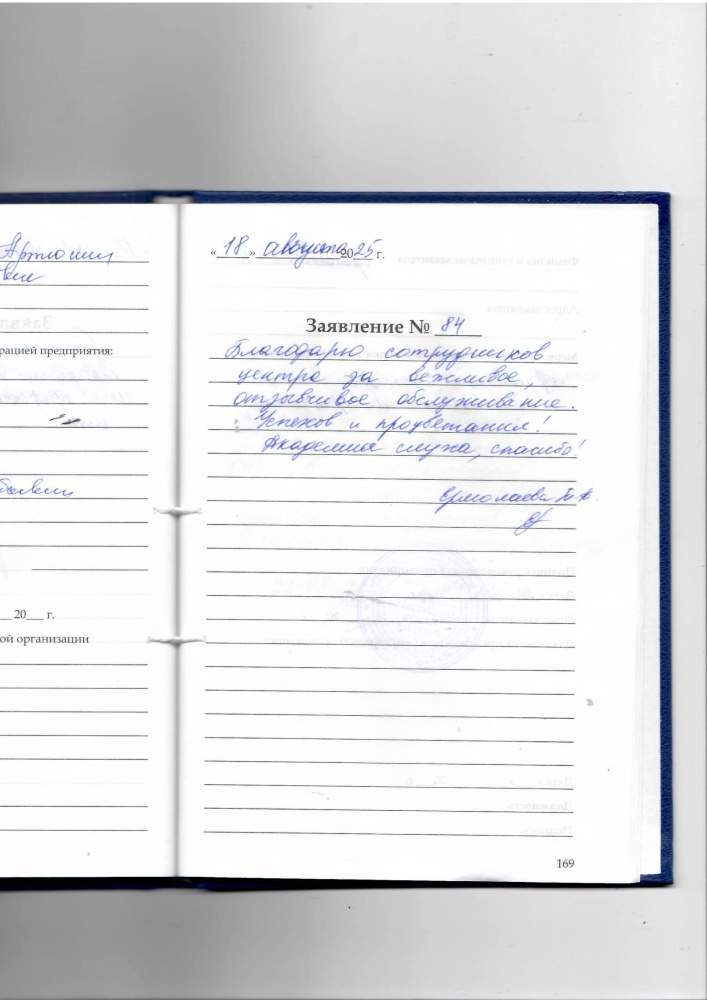 Артюшин
рацией предприятия:
20___ г.
ой организации
«18» августа 2025 г.
Заявление № 84
Благодарю сотрудников
центра за вежливое,
отзывчивое обслуживание.
Успехов и процветания!
Академия слуха, спасибо!
Ермолаева
169